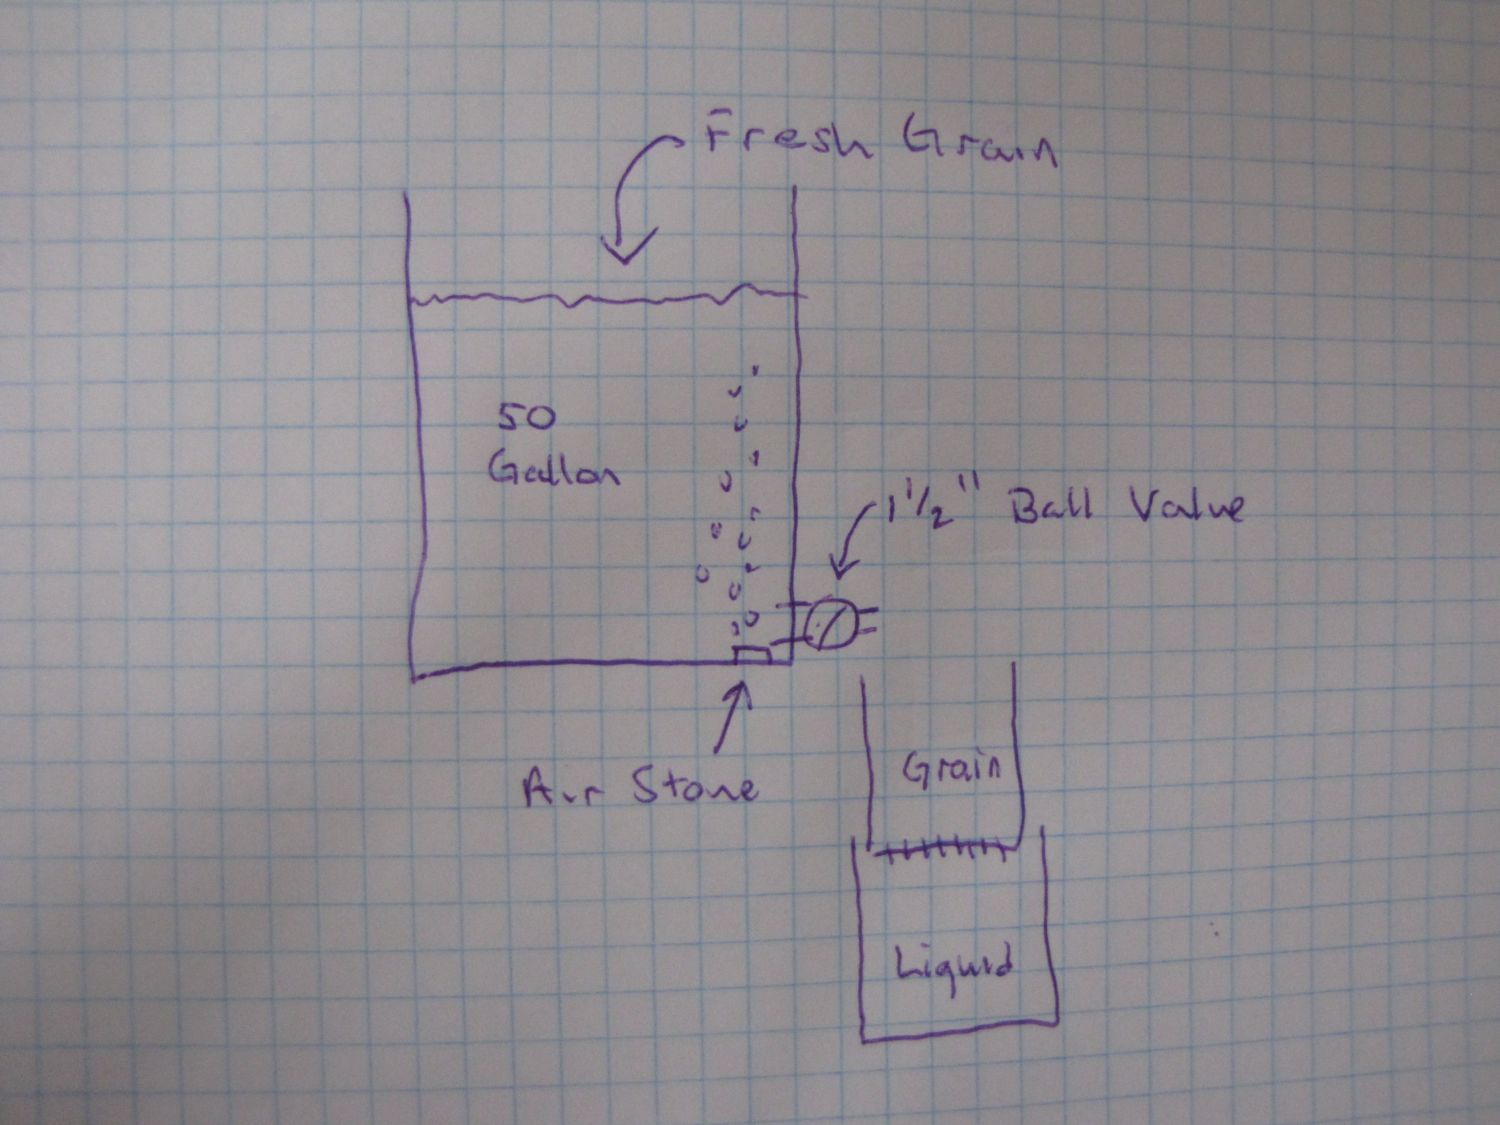 Fresh Grain
50
Gallon
1 1/2" Ball Valve
Air Stone
Grain
Liquid